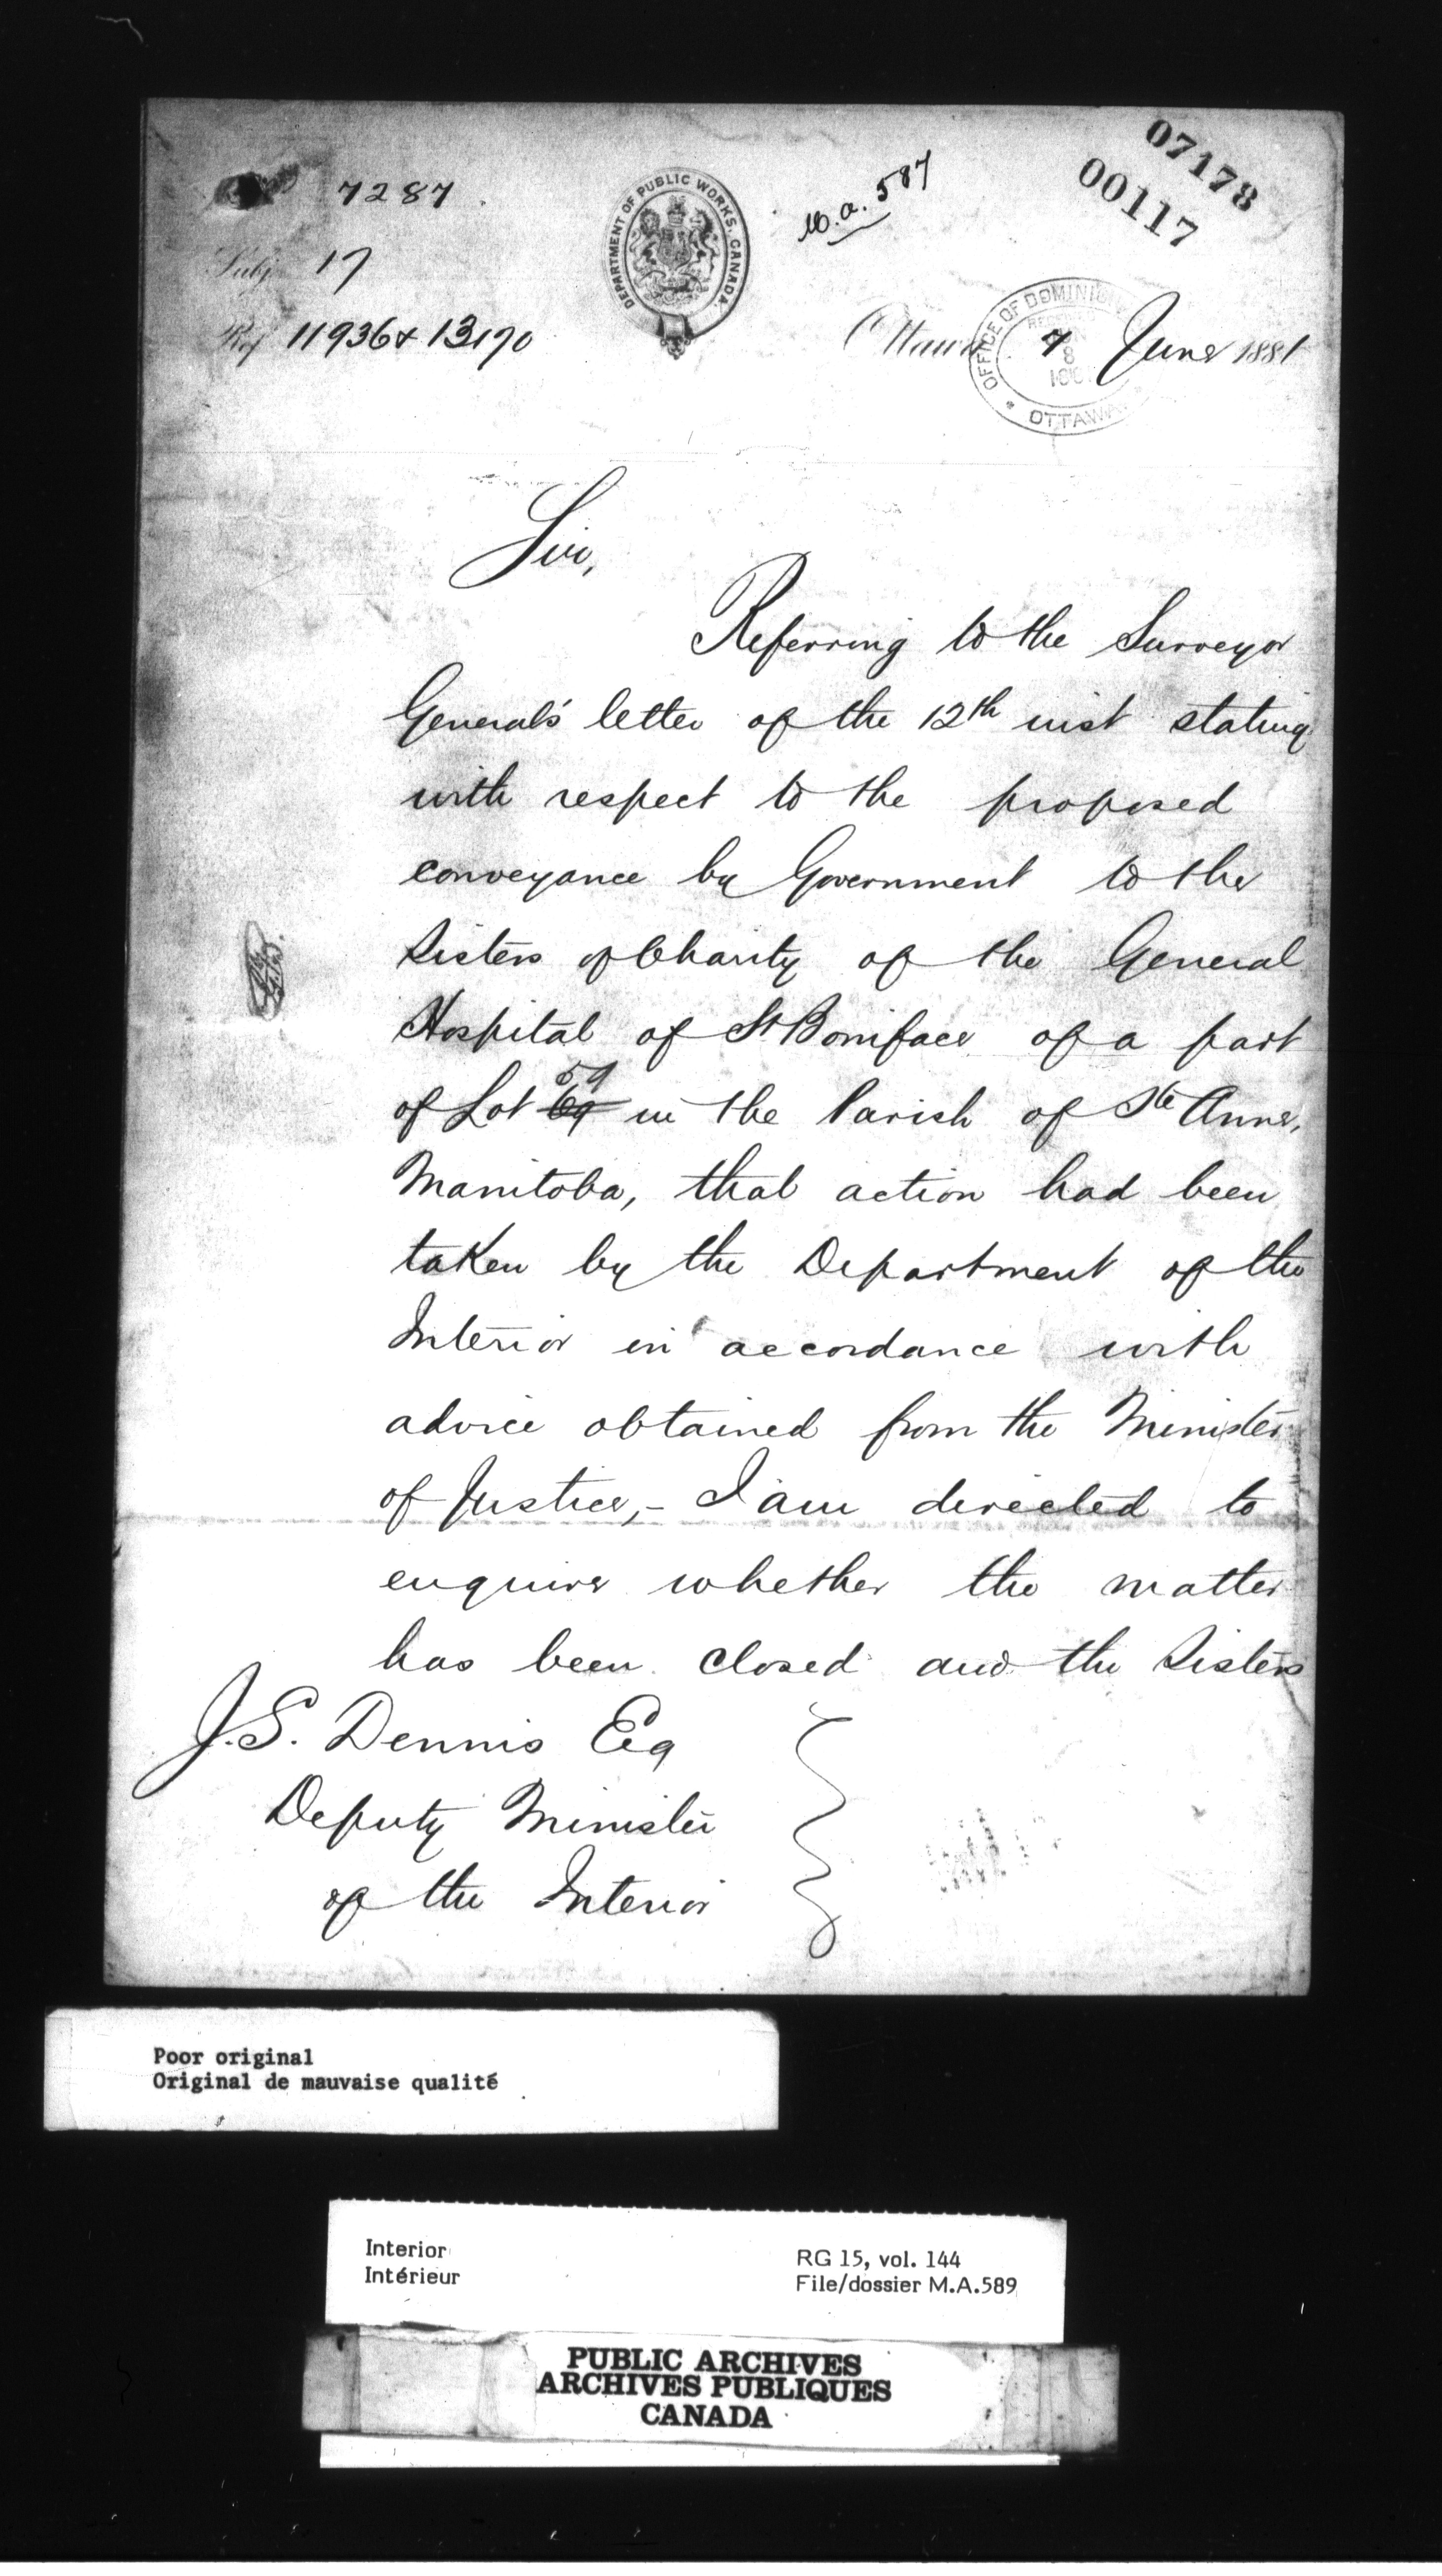 07178
00117
7287
M.A. 587
DEPARTMENT OF PUBLIC WORKS, CANADA.
Subj. 17
Ref 11936 & 13170
Ottawa 7 June 1881
OFFICE OF DOMINION
RECEIVED
8
OTTAWA
Sir,
Referring to the Surveyor
General's letter of the 12th inst stating
with respect to the proposed
conveyance by Government to the
Sisters of Charity of the General
Hospital of St Boniface of a part
59
of Lot 69 in the Parish of Ste Anne,
Manitoba, that action had been
taken by the Department of the
Interior in accordance with
advice obtained from the Minister
of Justice, - I am directed to
enquire whether the matter
has been closed and the Sisters
J.S. Dennis Esq
Deputy Minister
of the Interior
Poor original
Original de mauvaise qualité
Interior
Intérieur
RG 15, vol. 144
File/dossier M.A.589
PUBLIC ARCHIVES
ARCHIVES PUBLIQUES
CANADA